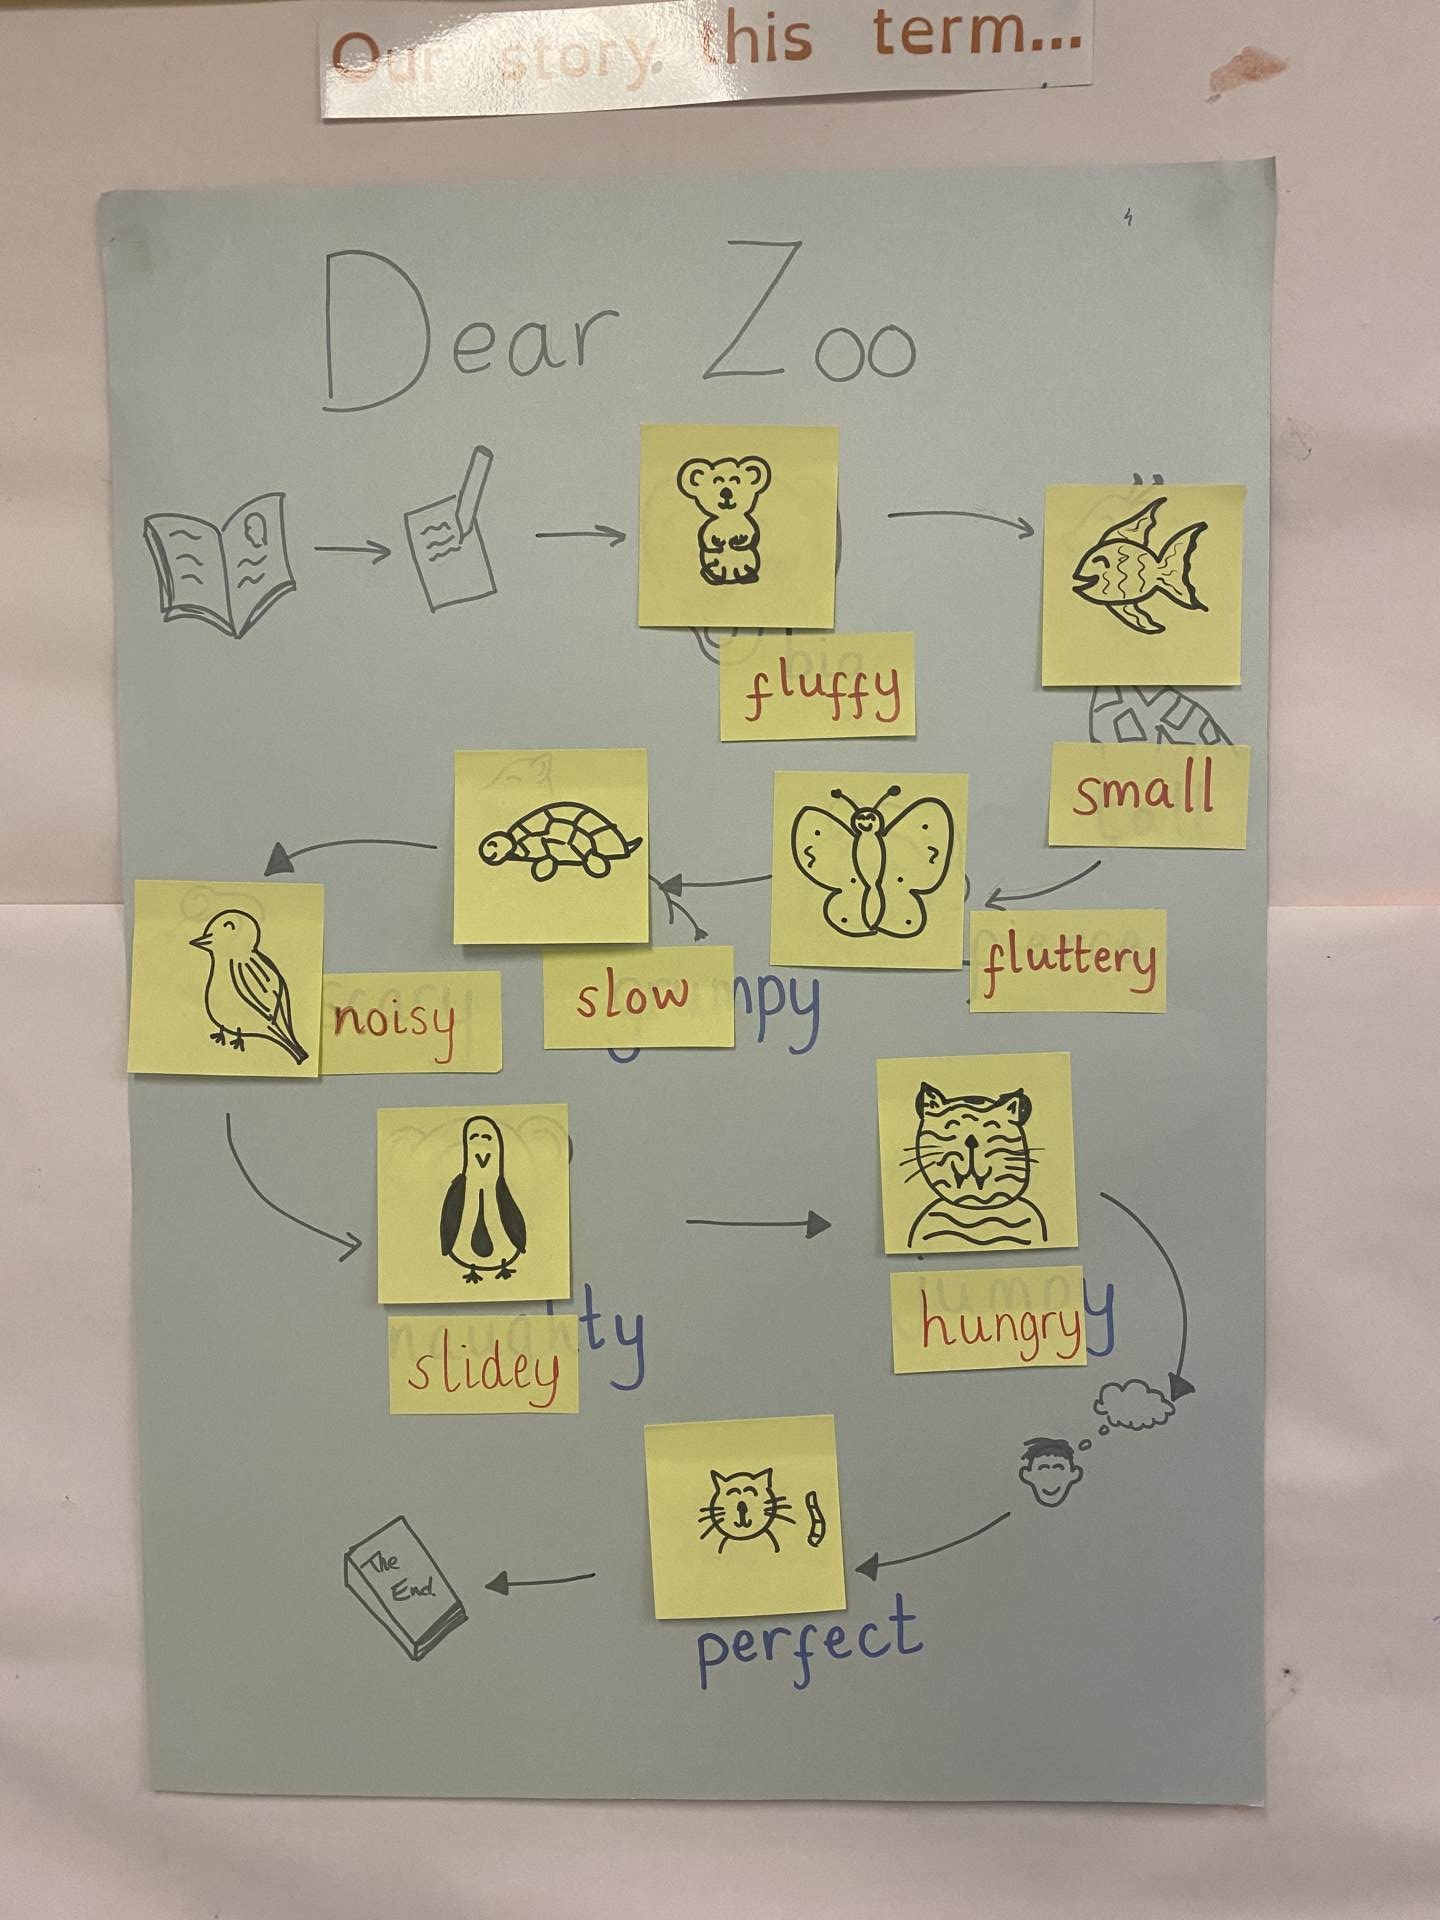 Our story this term...
Dear Zoo
fluffy
small
fluttery
slow
mpy
noisy
slidey
ty
hungry
y
perfect
The
End